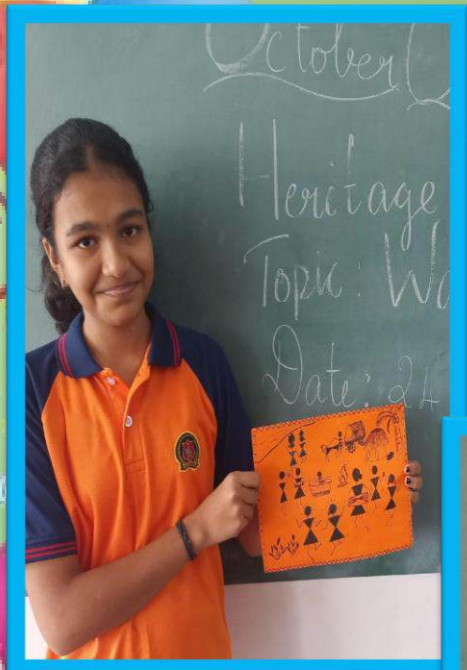 October
Heritage
Topic:
Date: 24